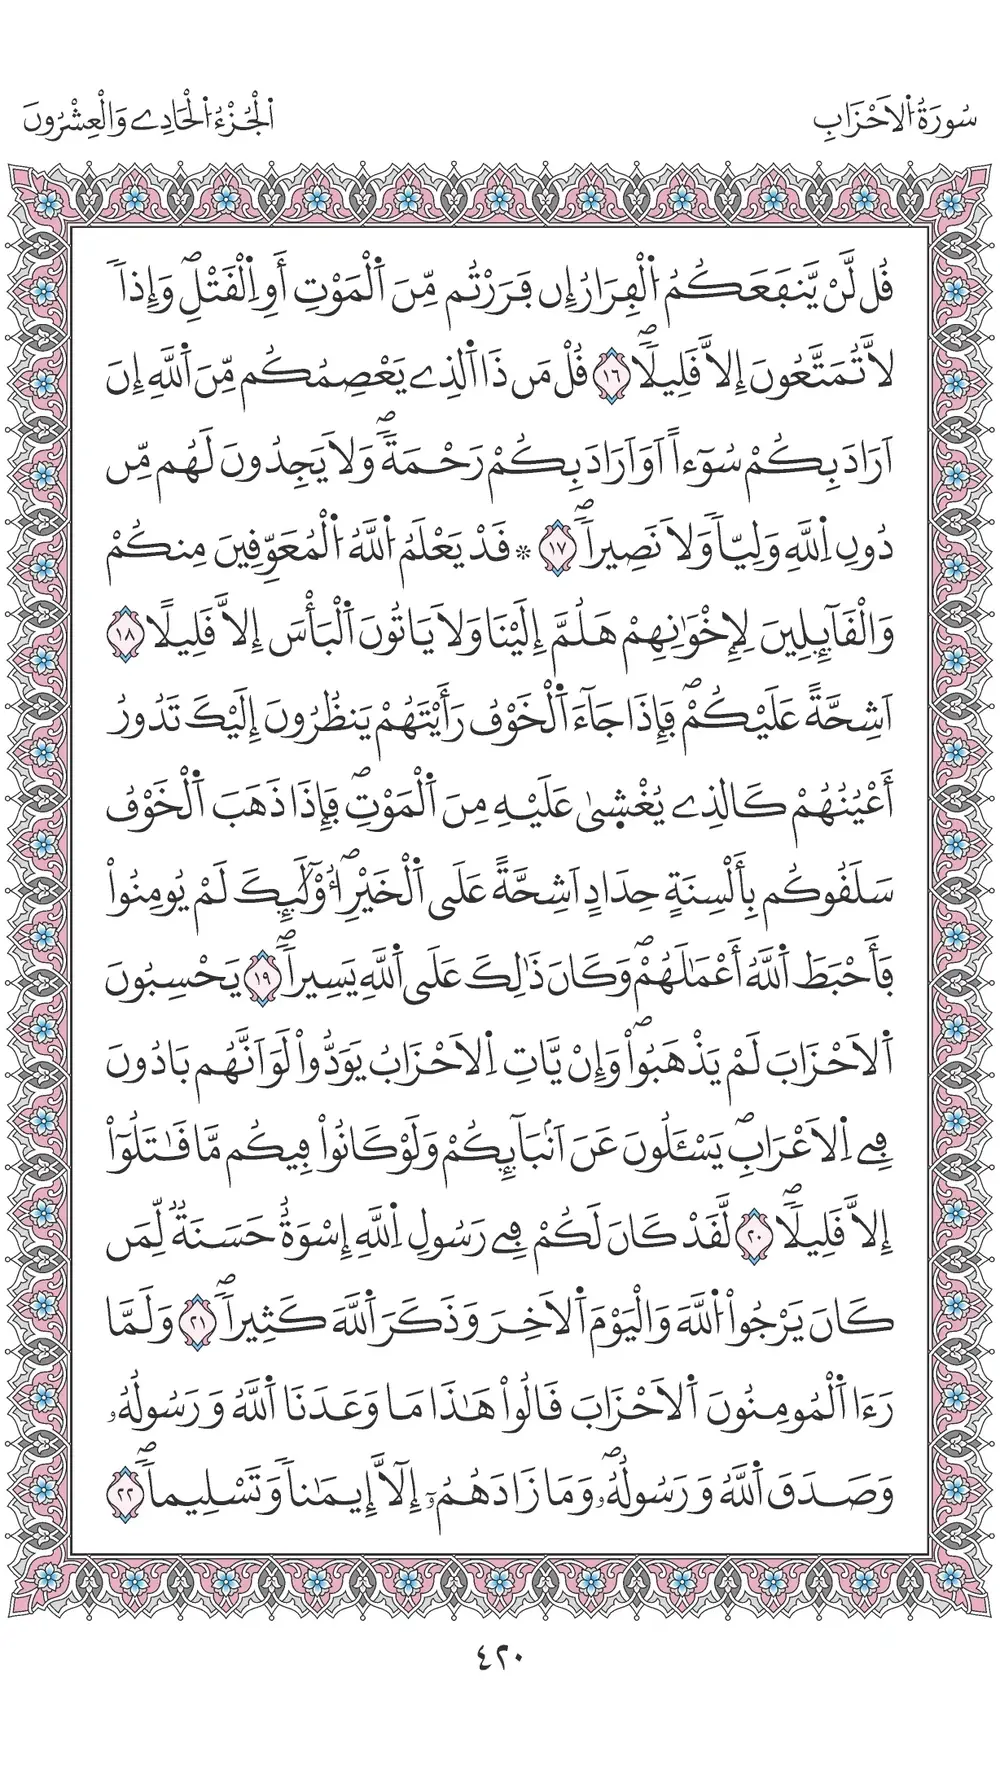 سُورَةُ اُ۬لَاحْزَابِ
اَ۬لْجُزْءُ اُ۬لْحَادِے وَالْعِشْرُونَ
قُل لَّنْ يَّنفَعَكُمُ اُ۬لْفِرَارُ إِن فَرَرْتُم مِّنَ اَ۬لْمَوْتِ أَوِ اِ۬لْقَتْلِۖ وَإِذاٗ
لَّا تُمَتَّعُونَ إِلَّا قَلِيلاٗۖ ١٦ قُلْ مَن ذَا اَ۬لذِے يَعْصِمُكُم مِّنَ اَ۬للَّهِ إِنَ
اَرَادَ بِكُمْ سُوٓءاً اَوَ اَرَادَ بِكُمْ رَحْمَةٗۖ وَلَا يَجِدُونَ لَهُم مِّن
دُونِ اِ۬للَّهِ وَلِيّاٗ وَلَا نَصِيراٗۖ ١٧ * قَدْ يَعْلَمُ اُ۬للَّهُ اُ۬لْمُعَوِّقِينَ مِنكُمْ
وَالْقَآئِلِينَ لِإِخْوَٰنِهِمْ هَلُمَّ إِلَيْنَا وَلَا يَاتُونَ اَ۬لْبَأْسَ إِلَّا قَلِيلاً ١٨
اَشِحَّةً عَلَيْكُمْۖ فَإِذَا جَآءَ اَ۬لْخَوْفُ رَأَيْتَهُمْ يَنظُرُونَ إِلَيْكَ تَدُورُ
أَعْيُنُهُمْ كَالذِے يُغْش۪يٰ عَلَيْهِ مِنَ اَ۬لْمَوْتِۖ فَإِذَا ذَهَبَ اَ۬لْخَوْفُ
سَلَقُوكُم بِأَلْسِنَةٍ حِدَادٍ اَشِحَّةً عَلَي اَ۬لْخَيْرِۖ أُوْلَٰٓئِكَ لَمْ يُومِنُواْ
فَأَحْبَطَ اَ۬للَّهُ أَعْمَٰلَهُمْۖ وَكَانَ ذَٰلِكَ عَلَي اَ۬للَّهِ يَسِيراٗۖ ١٩ يَحْسِبُونَ
اَ۬لَاحْزَابَ لَمْ يَذْهَبُواْۖ وَإِنْ يَّاتِ اِ۬لَاحْزَابُ يَوَدُّواْ لَوَ اَنَّهُم بَادُونَ
فِے اِ۬لَاعْرَابِۖ يَسْـَٔلُونَ عَنَ اَنۢبَآئِكُمْ وَلَوْ كَانُواْ فِيكُم مَّا قَٰتَلُوٓاْ
إِلَّا قَلِيلاٗۖ ٢٠ لَّقَدْ كَانَ لَكُمْ فِے رَسُولِ اِ۬للَّهِ إِسْوَةٌ حَسَنَةٞ لِّمَن
كَانَ يَرْجُواْ اُ۬للَّهَ وَالْيَوْمَ اَ۬لَاخِرَ وَذَكَرَ اَ۬للَّهَ كَثِيراٗۖ ٢١ وَلَمَّا
رَءَا اَ۬لْمُومِنُونَ اَ۬لَاحْزَابَ قَالُواْ هَٰذَا مَا وَعَدَنَا اَ۬للَّهُ وَرَسُولُهُۥ
وَصَدَقَ اَ۬للَّهُ وَرَسُولُهُۥۖ وَمَا زَادَهُمُۥٓ إِلَّآ إِيمَٰناٗ وَتَسْلِيماٗۖ ٢٢
٤٢٠